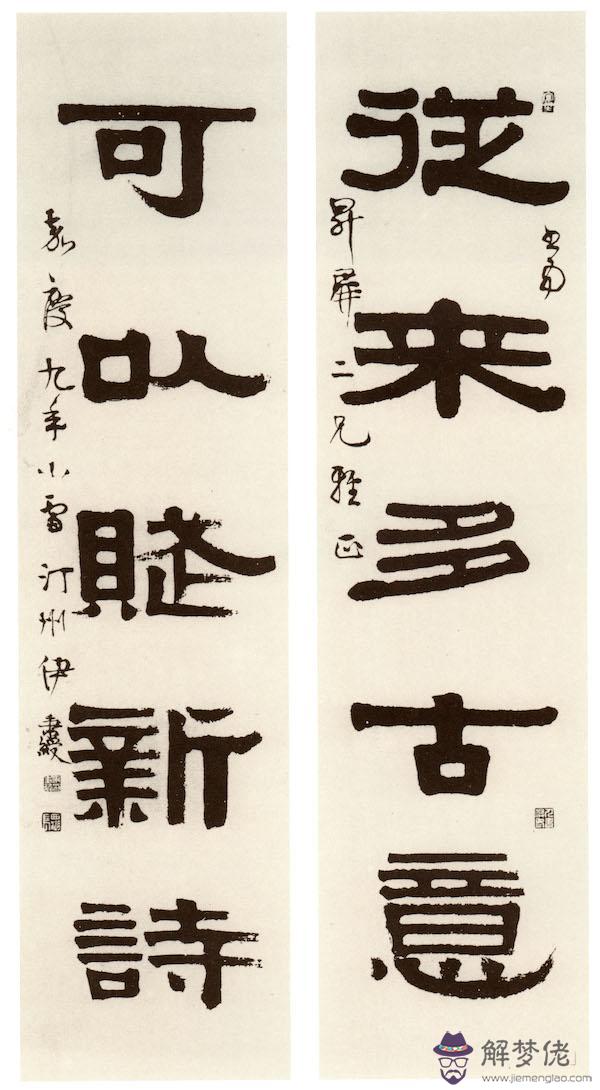 從來多古意
昇屏二兄雅正
可以賦新詩
嘉慶九年小雪汀州伊秉綬
解梦佬
www.jiemenglao.com